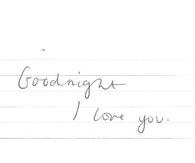 Goodnight
I love you.